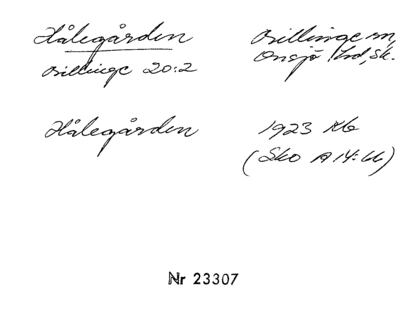 Hålegården
Billinge 20:2
Billinge sn,
Onsjö hd, Sk.
Hålegården
1923 Kb
(Sko A 14:66)
Nr 23307